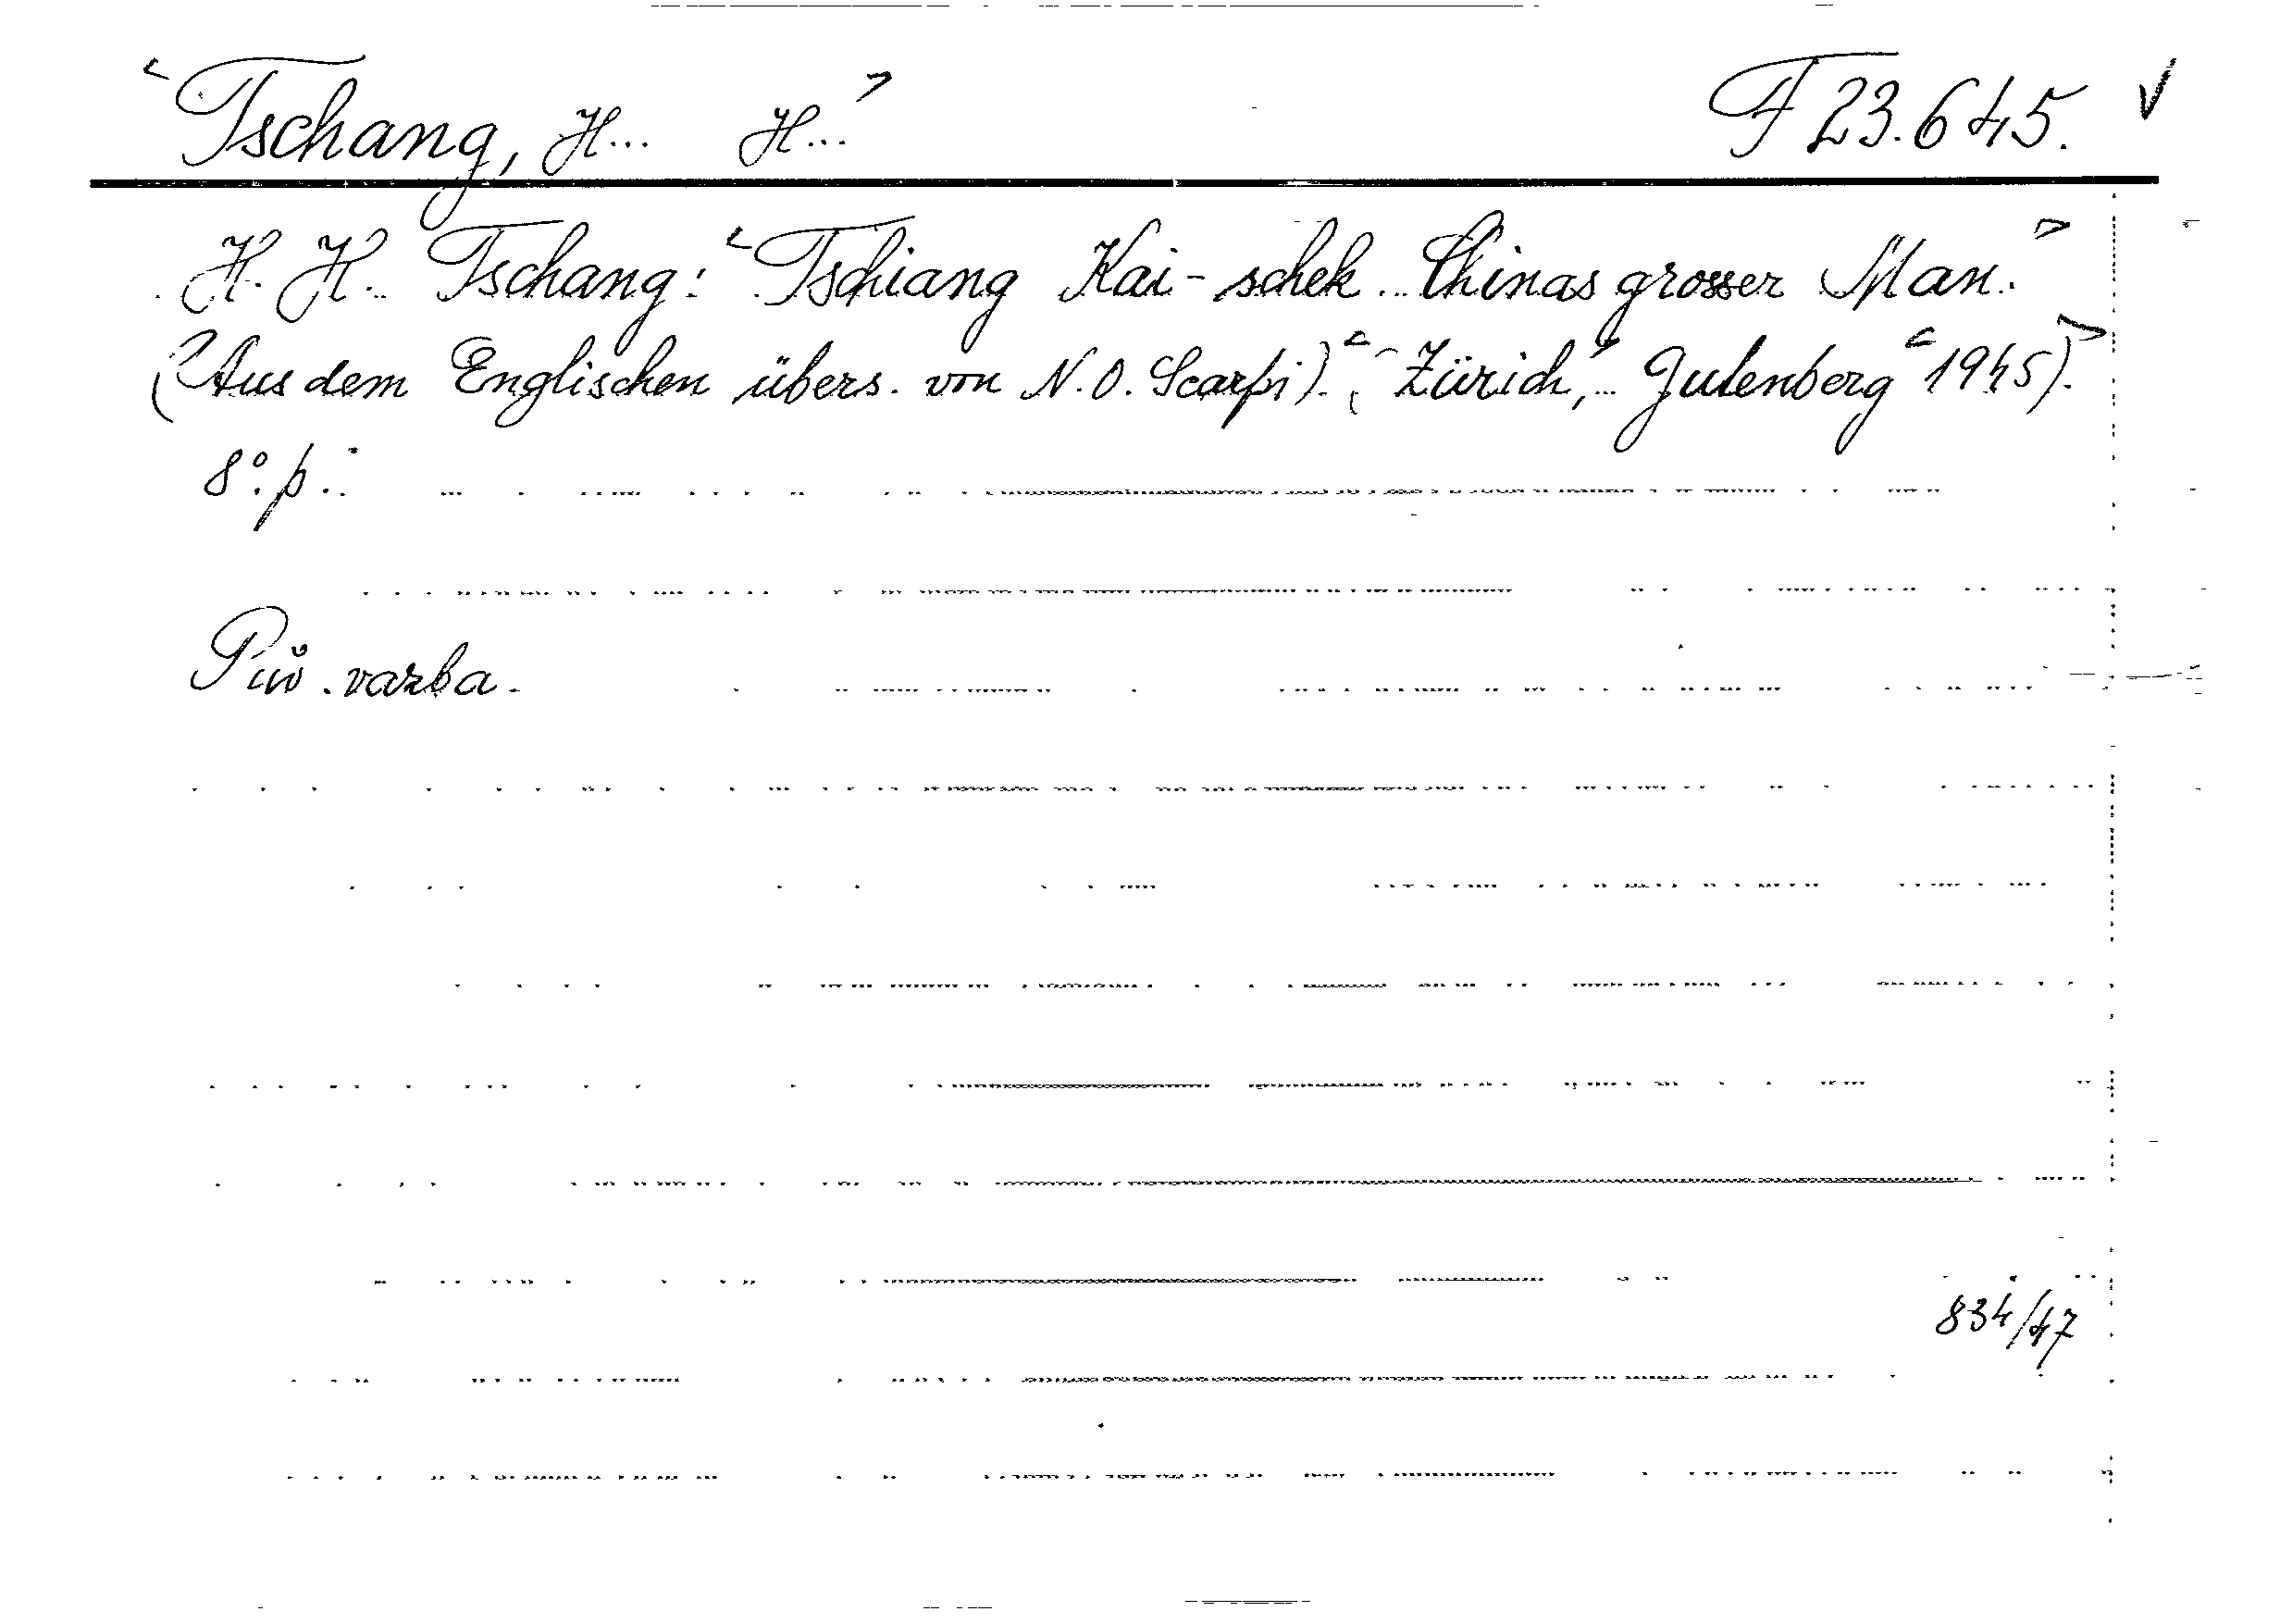 Tschang, H... H... F 23.645.
H. H. Tschang: Tschiang Kai-schek. Chinas grosser Man.
(Aus dem Englischen übers. von N. O. Scarpi). Zürich, Gutenberg 1945).
8°. p.
Pův. vazba.
834/47